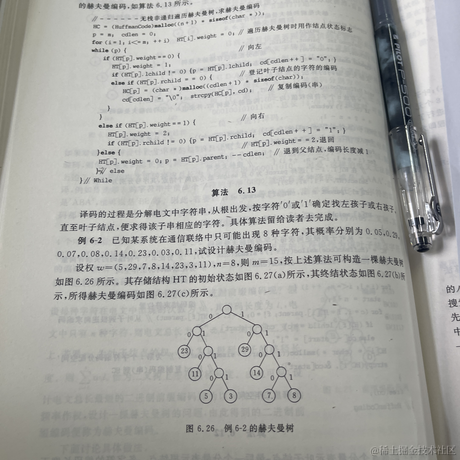 的赫夫曼编码,如算法 6.13 所示。
//-------无栈非递归遍历赫夫曼树,求赫夫曼编码
HC = (HuffmanCode)malloc((n+1) * sizeof(char *));
p = m; cdlen = 0;
for (i = 1; i<= m; ++i) HT[i].weight = 0; // 遍历赫夫曼树时用作结点状态标志
while (p) {
if (HT[p].weight==0) { // 向左
HT[p].weight = 1;
if (HT[p].lchild != 0) {p = HT[p].lchild; cd[cdlen++] = "0"; }
else if (HT[p].rchild == 0) { // 登记叶子结点的字符的编码
HC[p] = (char *)malloc((cdlen+1) * sizeof(char));
cd[cdlen] = "\0"; strcpy(HC[p], cd); // 复制编码(串)
}
}
else if (HT[p].weight==1) { // 向右
HT[p].weight = 2;
if (HT[p].rchild != 0) {p = HT[p].rchild; cd[cdlen++] = "1"; }
}else { // HT[p].weight==2,退回
HT[p].weight = 0; p = HT[p].parent; --cdlen; // 退到父结点,编码长度减1
}// else
}// While
算法 6.13
译码的过程是分解电文中字符串,从根出发,按字符'0'或'1'确定找左孩子或右孩子,
直至叶子结点,便求得该子串相应的字符。具体算法留给读者去完成。
例 6-2 已知某系统在通信联络中只可能出现 8 种字符,其概率分别为 0.05,0.29,
0.07,0.08,0.14,0.23,0.03,0.11,试设计赫夫曼编码。
设权 w=(5,29,7,8,14,23,3,11),n=8,则 m=15,按上述算法可构造一棵赫夫曼树
如图 6.26 所示。其存储结构 HT 的初始状态如图 6.27(a)所示,其终结状态如图 6.27(b)所
示,所得赫夫曼编码如图 6.27(c)所示。
0 1
0 1 0 1
23 0 1 29 0 1
11 0 1 14 0 1
5 3 7 8
图 6.26 例 6-2 的赫夫曼树
@稀土掘金技术社区